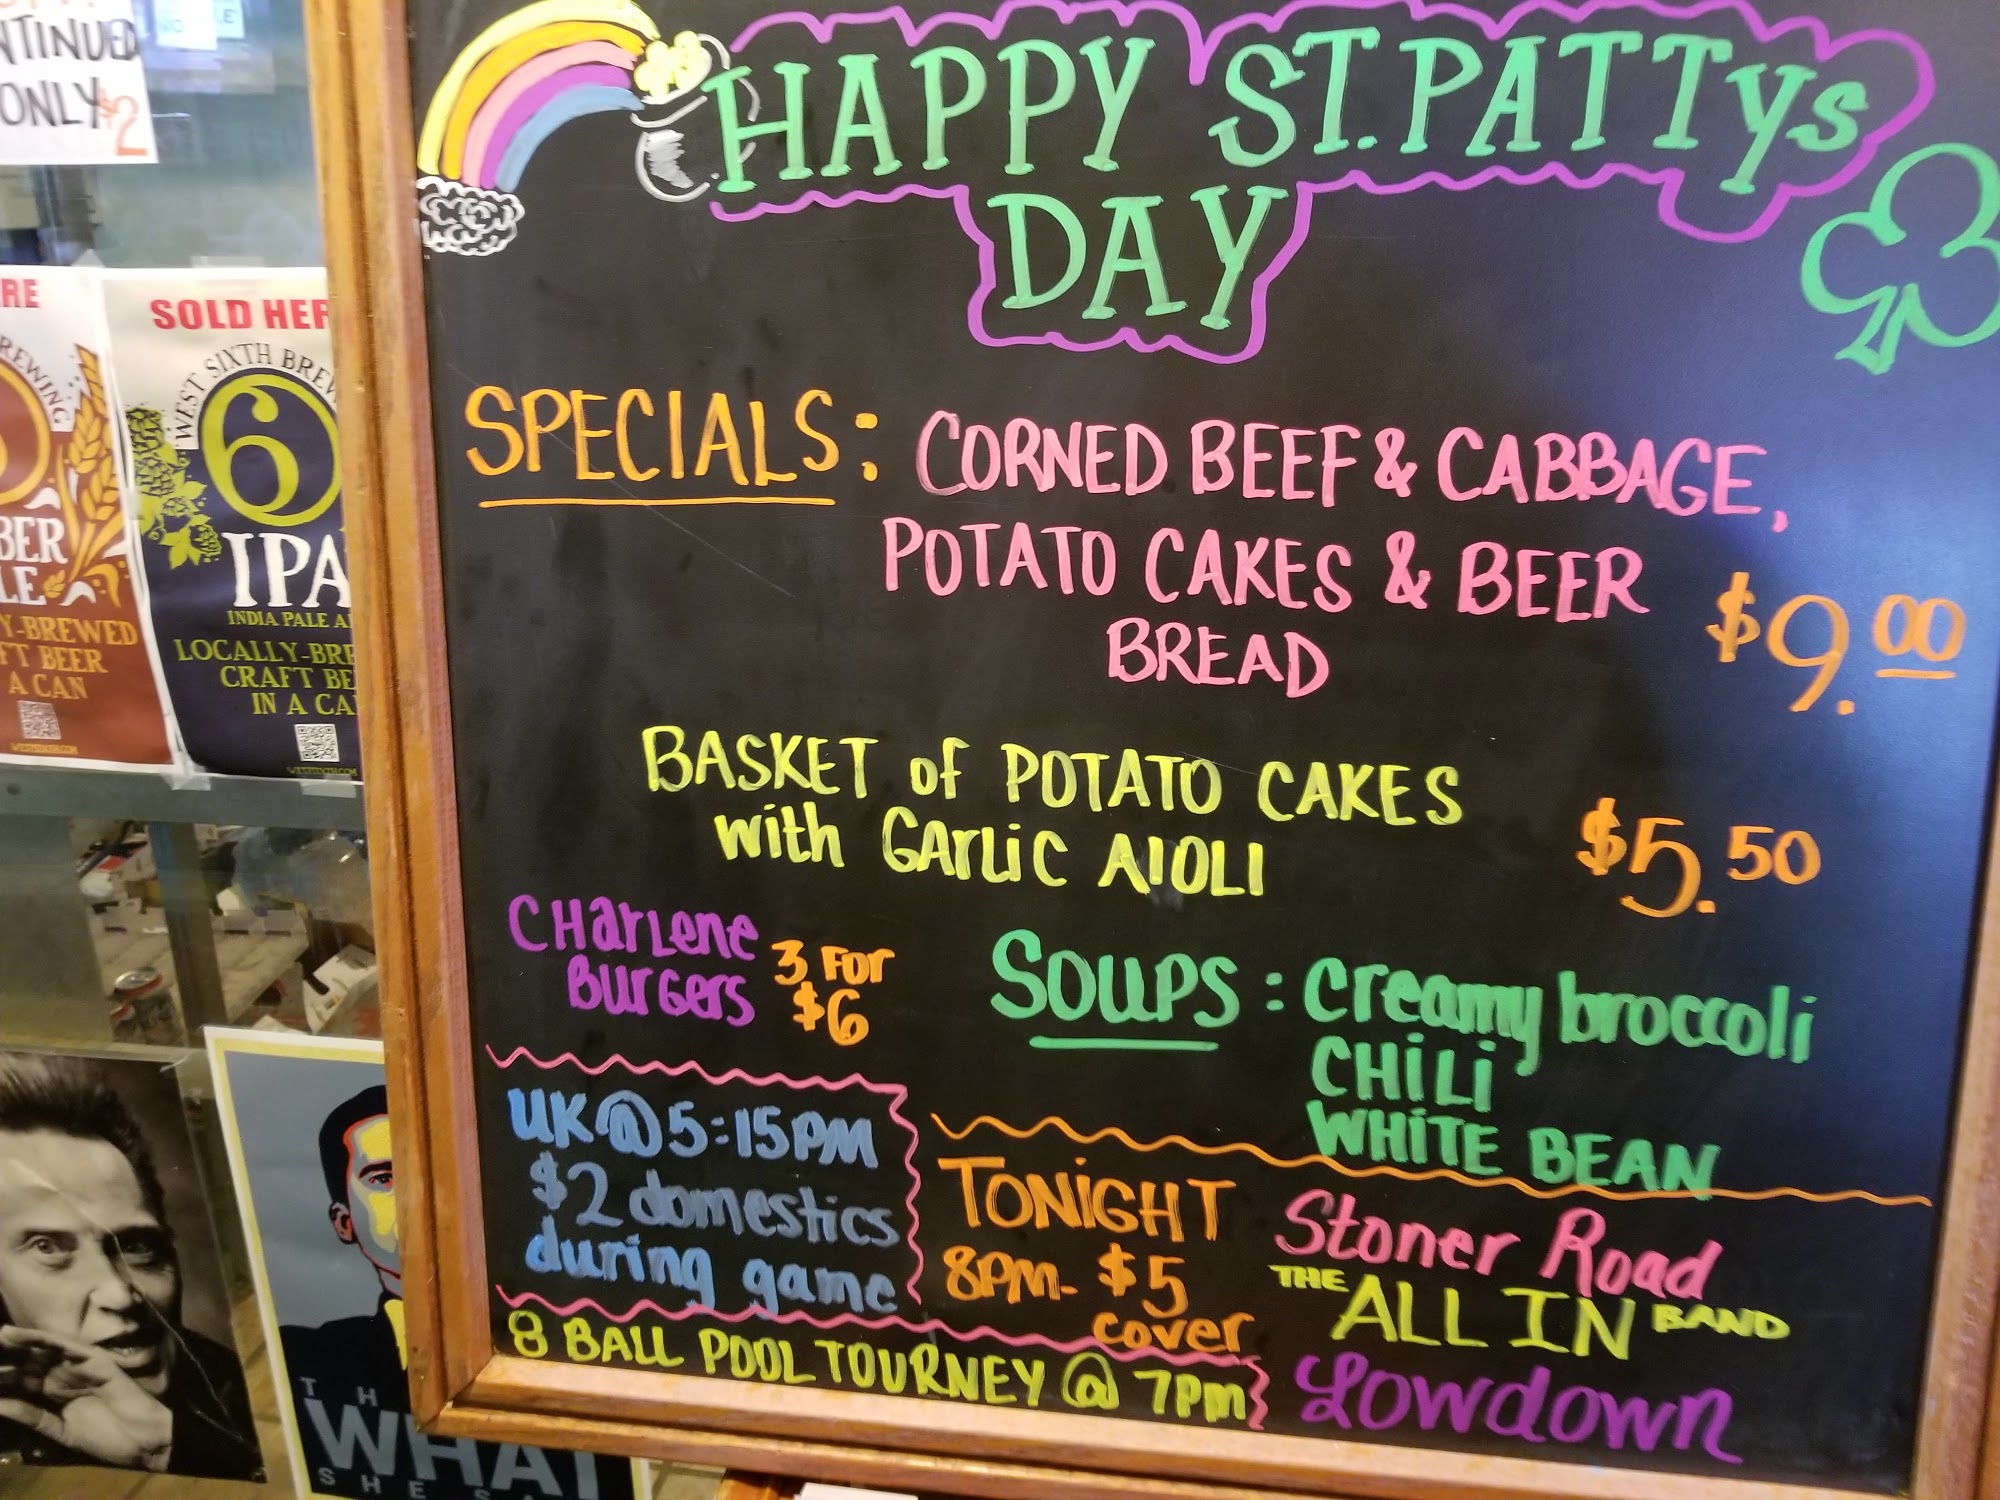 ONLY $2
HAPPY ST. PATTYS
DAY
SPECIALS: CORNED BEEF & CABBAGE,
POTATO CAKES & BEER
BREAD
$9.00
BASKET of POTATO CAKES
with GARLIC AIOLI
$5.50
CHARLENE
BURGERS
3 FOR
$6
SOUPS: Creamy broccoli
CHILI
WHITE BEAN
UK @ 5:15PM
$2 domestics
during game
TONIGHT
8PM- $5
cover
Stoner Road
THE ALL IN BAND
Lowdown
8 BALL POOL TOURNEY @ 7PM
SOLD HER
WEST SIXTH BREW
6
IPA
INDIA PALE A
LOCALLY-BRE
CRAFT BE
IN A CA
Y-BREWED
FT BEER
A CAN
WHAT
SHE S